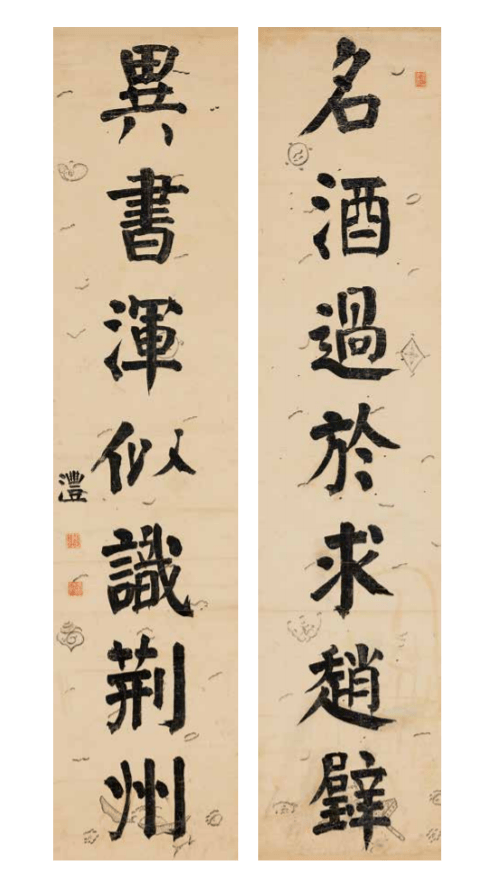 名酒過於求趙璧
異書渾似識荆州
澧